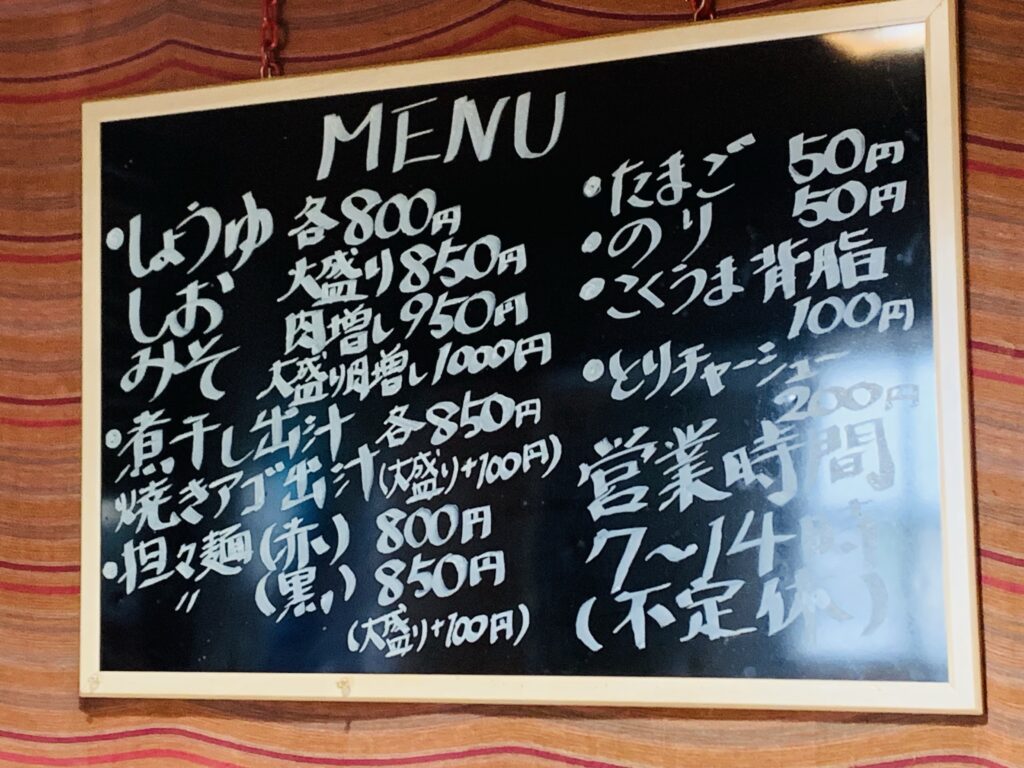 MENU
・しょうゆ 各800円
しお 大盛り850円
みそ 肉増し950円
大盛り肉増し1000円
・煮干し出汁 各850円
焼きアゴ出汁(大盛り+100円)
・担々麺(赤い) 800円
〃 (黒い) 850円
(大盛り+100円)
・たまご 50円
・のり 50円
・こくうま背脂
100円
・とりチャーシュー
200円
営業時間
7〜14時
(不定休)